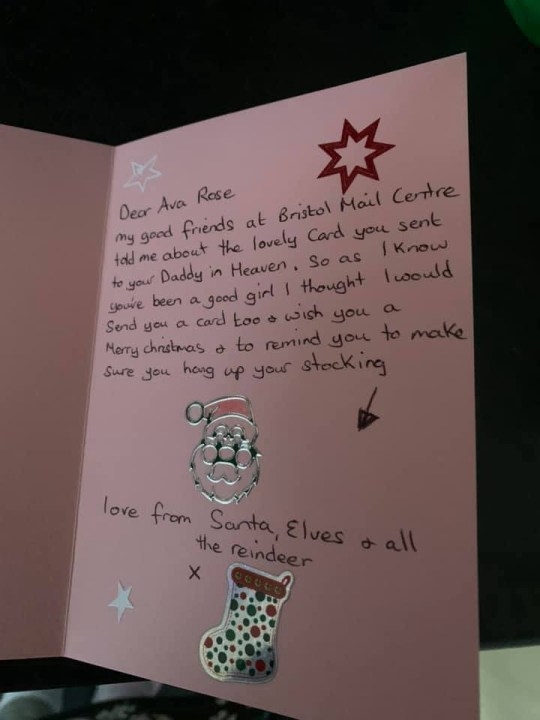 Dear Ava Rose
my good friends at Bristol Mail Centre
told me about the lovely Card you sent
to your Daddy in Heaven. So as I know
you've been a good girl I thought I would
Send you a card too & wish you a
Merry christmas & to remind you to make
Sure you hang up your stocking
love from Santa, Elves & all
the reindeer
x